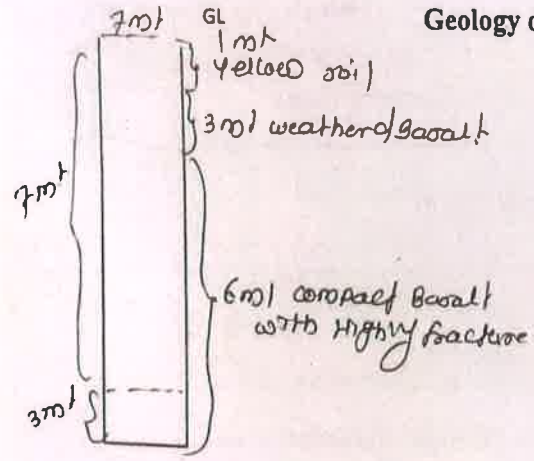 7mt
GL
Geology o
1 mt
yelloeD soil
3mt weathered/Basalt
7mt
6mt compact Basalt
with Highly fracture
3mt